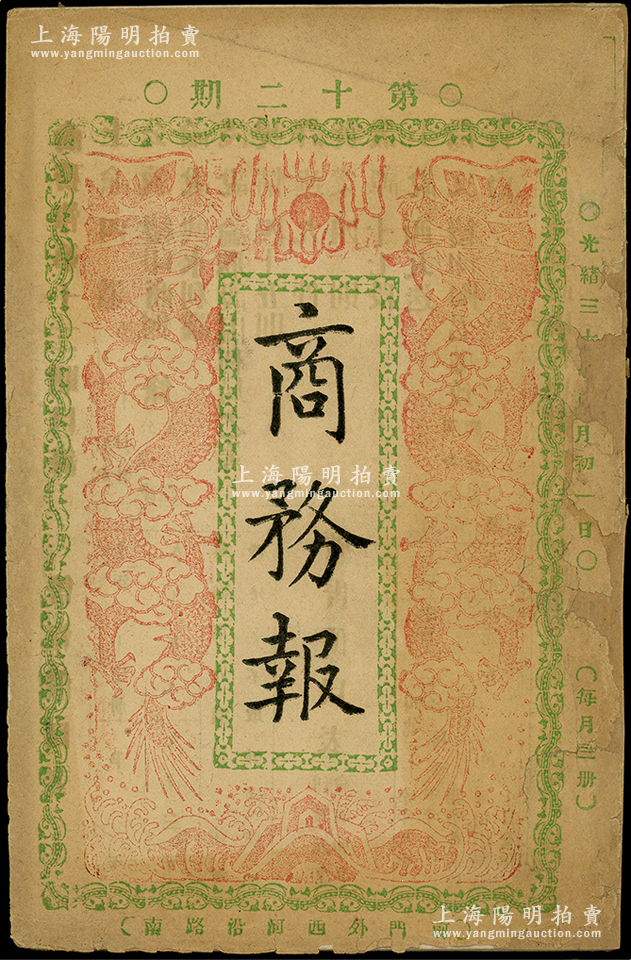 上海陽明拍賣
www.yangmingauction.com
○第十二期○
○光緒三十
月初一日○
（每月三册）
商務報
上海陽明拍賣
www.yangmingauction.com
門外西河沿路南）
上海陽明拍賣
www.yangmingauction.com